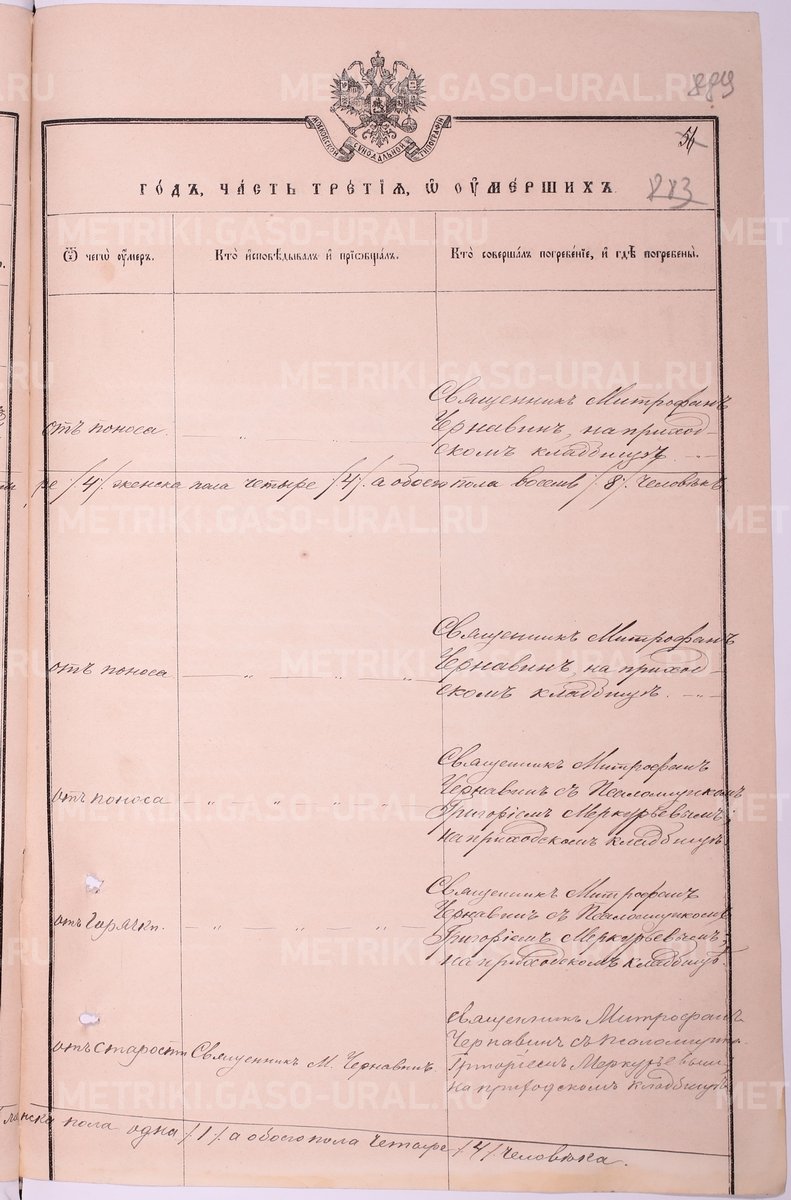 METRIKI.GASO-URAL.RU
889
МОСКОВСКОЙ СѴНОДАЛЬНОЙ ТИПОГРАФІИ
54
883
ГОДЪ, ЧАСТЬ ТРЕТІЯ, Ѿ ОУМЕРШИХЪ
Ѿ чегѡ оумеръ.
Кто исповѣдывалъ и пріѡбщалъ.
Кто совершалъ погребеніе, и гдѣ погребены.
отъ поноса.
Священникъ Митрофанъ
Чернавинъ, на приход-
скомъ кладбищѣ.
ре /4/. женска пола четыре /4/. а обоего пола восемь /8/. человѣкъ
отъ поноса
Священникъ Митрофанъ
Чернавинъ, на приход-
скомъ кладбищѣ.
отъ поноса
Священникъ Митрофанъ
Чернавинъ съ Псаломщикомъ
Григоріемъ Меркурьевымъ,
на приходскомъ кладбищѣ
отъ горячки.
Священникъ Митрофанъ
Чернавинъ съ Псаломщикомъ
Григоріемъ Меркурьевымъ,
на приходскомъ кладбищѣ.
отъ старости
Священникъ М. Чернавинъ.
Священникъ Митрофанъ
Чернавинъ съ псаломщик.
Григоріемъ Меркурьевым
на приходскомъ кладбищѣ
женска пола одна /1/. а обоего пола четыре /4/. человѣка.